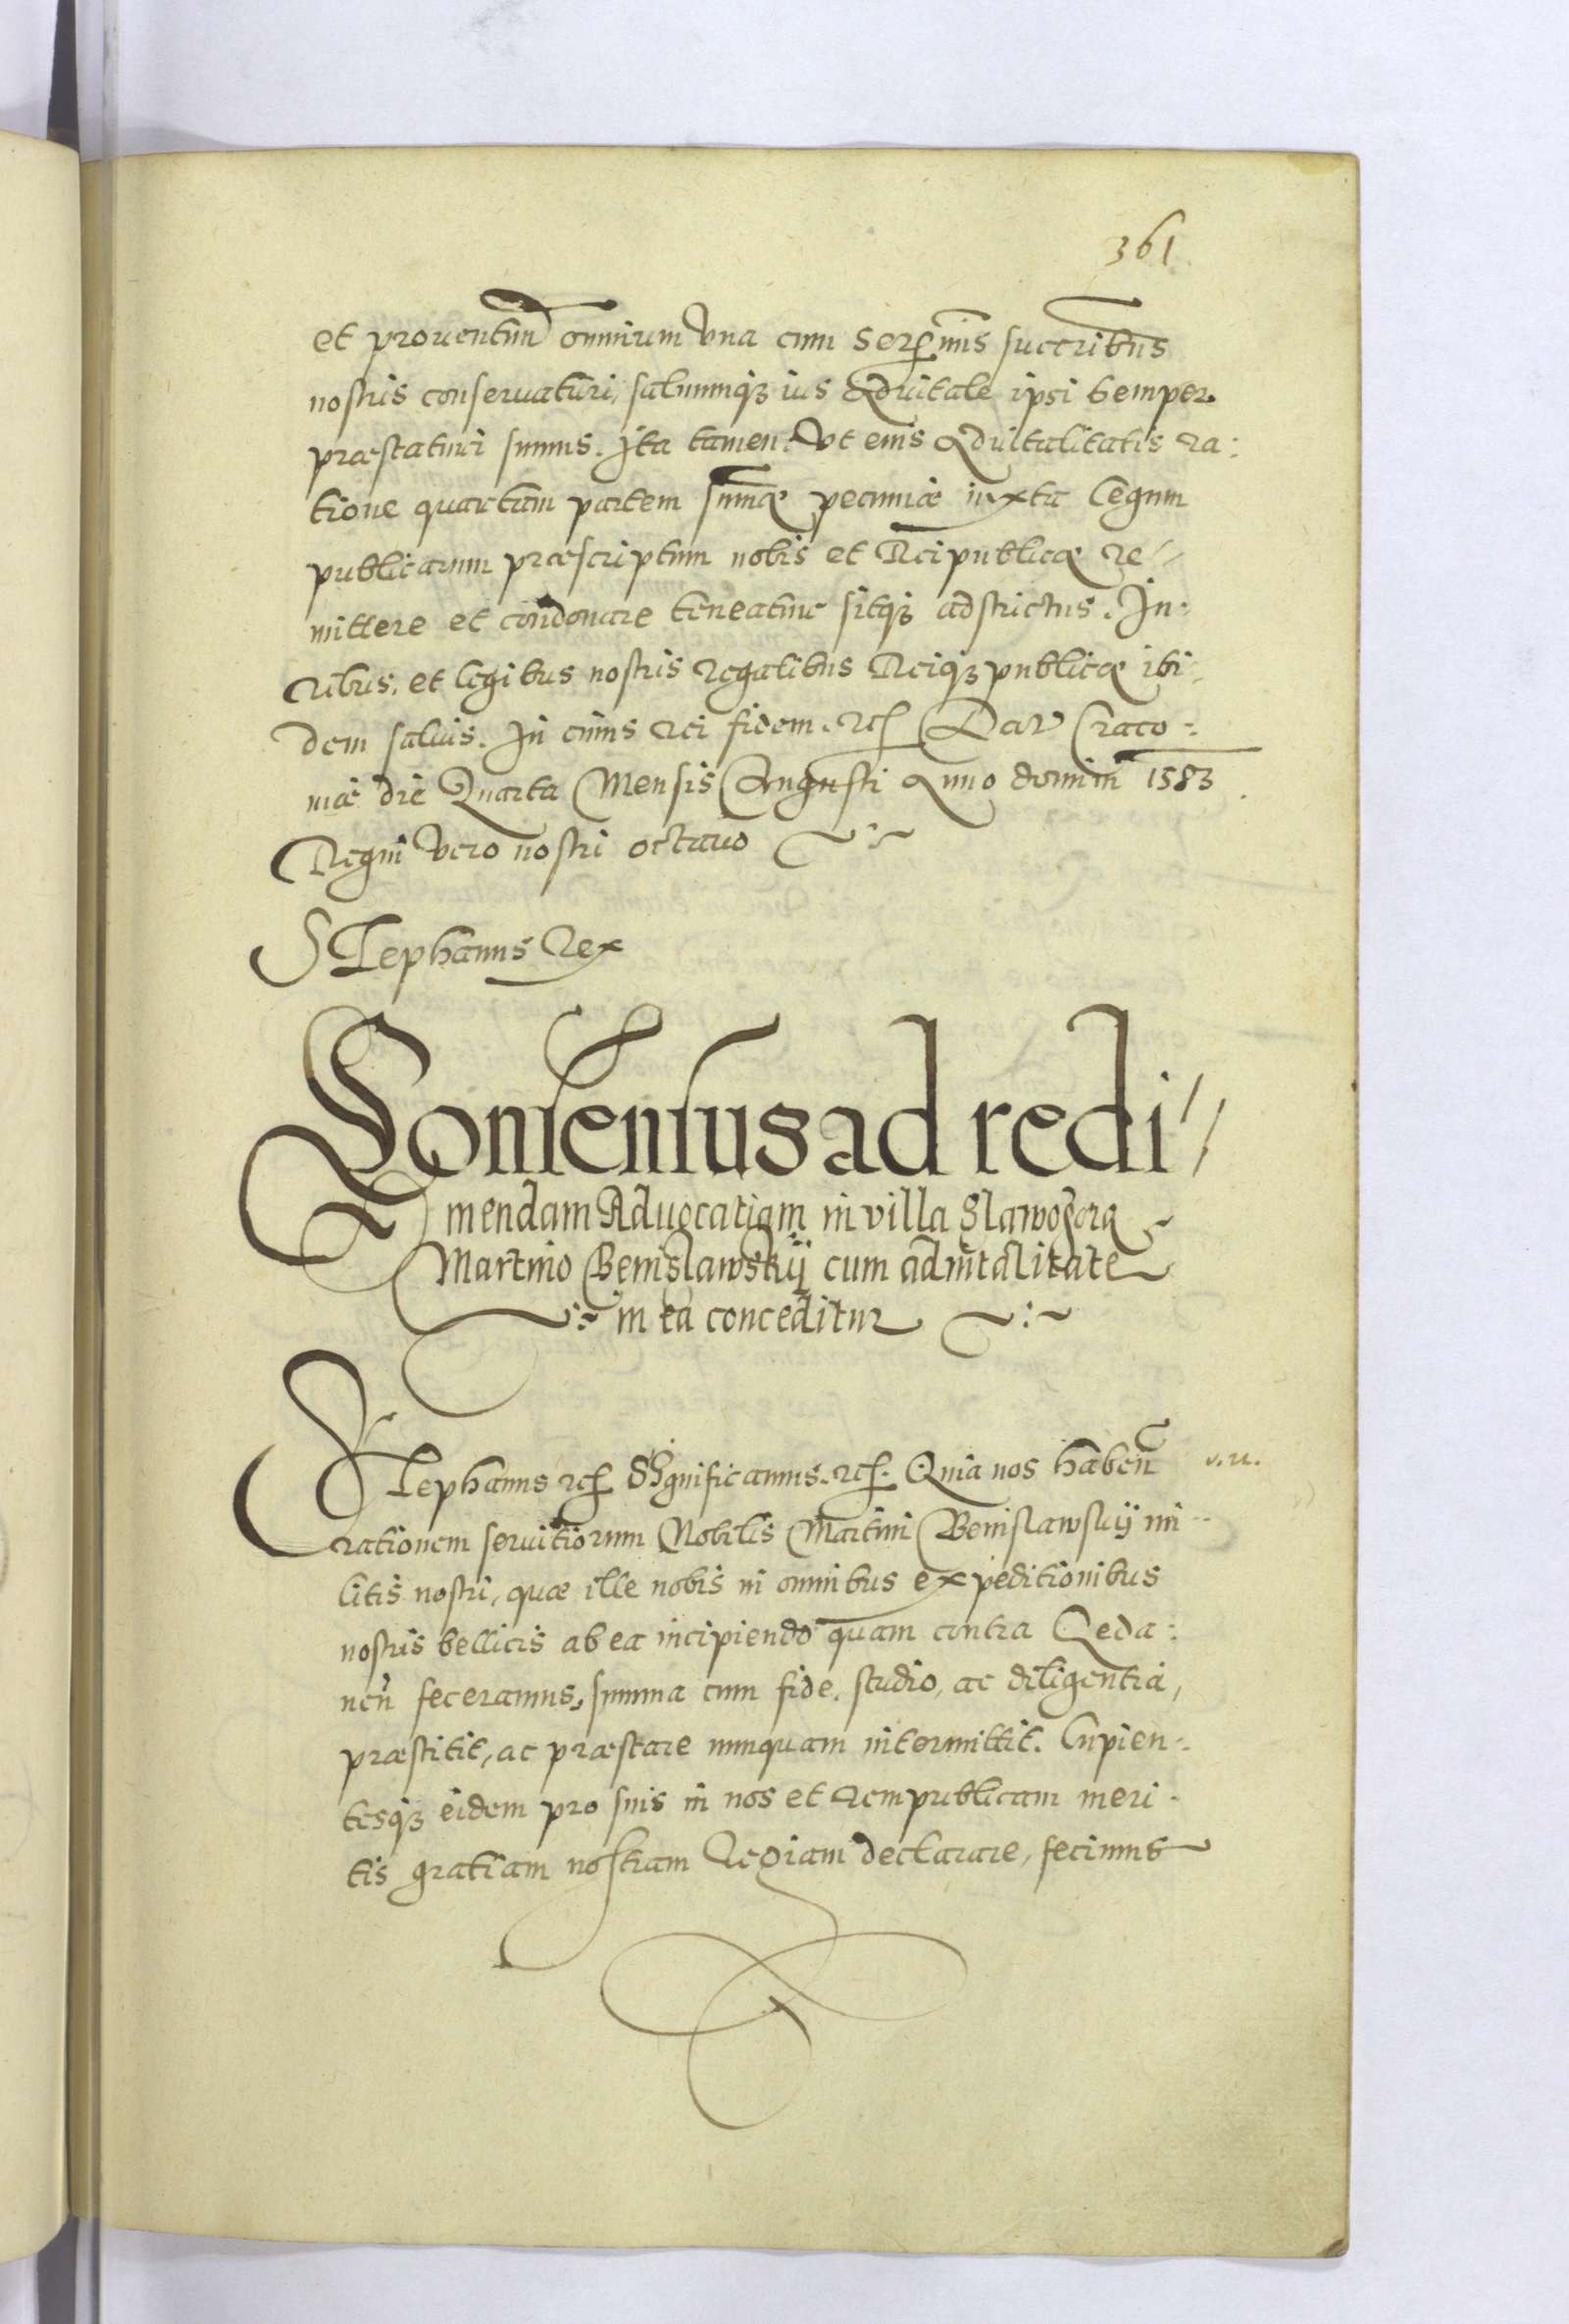 361
et prouentuũ omnium vna cum Serẽmis succribus
nostris conseruaturi, saluumq3 ius Aduitale ipsi semper
præstaturi sumus. Ita tamen. Vt eius Aduitalitatis ra:
tione quartam partem sum̃æ pecuniæ iuxta legum
publicarum præscriptum nobis et Reipublicæ re//
mittere et condonare teneatur sitq3 adstrictus. Iu:
ribus, et legibus nostris regalibus Reiq3 publicæ ibi:
dem saluis. In cuius rei fidem. etc Dat Craco:
uiæ die Quarta Mensis Augusti Anno domini 1583.
Regni vero nostri octauo
Stephanus Rex
Consensus ad redi//
mendam Aduocatiam in villa Slawogora
Martino Benislawskÿ cum aduitalitate
in ea conceditur
Stephanus etc Significamus. etc. Quia nos haben̄ v. u.
rationem seruitiorum Nobilis Martini Benislawskÿ mi:
litis nostri, quæ ille nobis in omnibus expeditionibus
nostris bellicis ab ea incipiendo quam contra Geda:
nen̄ feceramus, summa cum fide, studio, ac diligentia,
præstitit, ac præstare nunquam intermittit. Cupien:
tesq3 eidem pro suis in nos et Rempublicam meri:
tis gratiam nostram Regiam declarare, fecimus